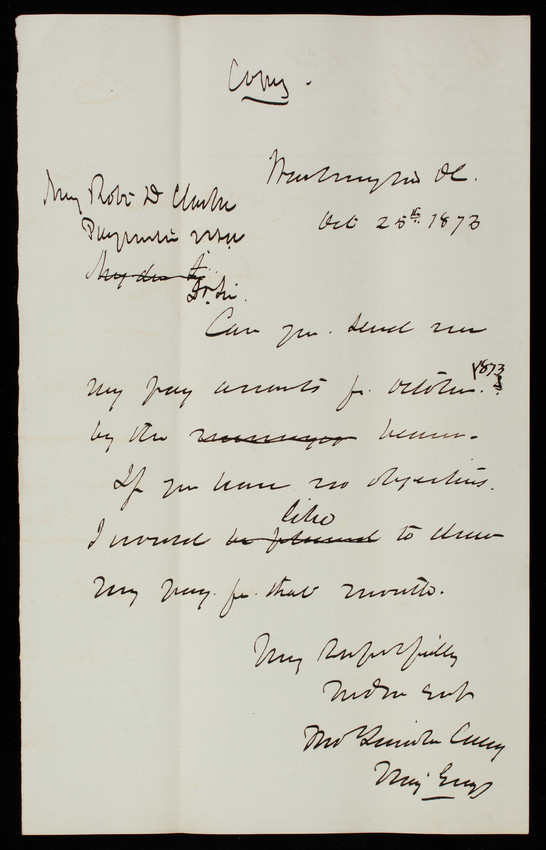 Copy.
Washington DC.
Oct 25th 1873
Maj Robt D Clarke
Paymaster USA
My dear Sir
Dr. Sir.
Can you send me
my pay accounts for October. 1873
by the messenger bearer.
If you have no objections.
I would be pleased like to draw
my pay for that month.
Very respectfully
Your Obt Svt
Thos Lincoln Casey
Maj Engs